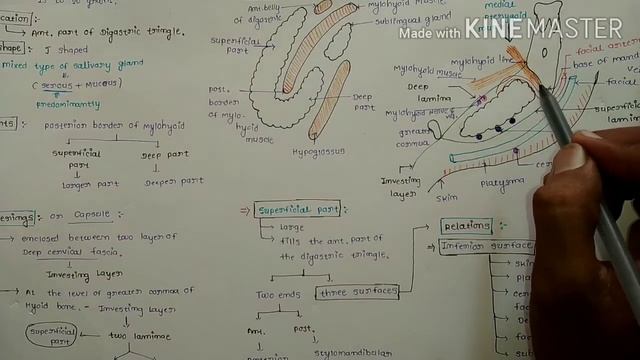 cation :
→ Ant. part of Digastric tringle.
shape : J shaped
mixed type of salivary gland
(serous + Mucous)
predominantly
rts : posterior border of mylohyoid
superficial part
Deep part
Larger part
Deeper part
or Capsule :-
→ enclosed between two layer of
Deep cervical fascia.
Investing Layer
→ At the level of greater cornua of
Hyoid bone. - Investing Layer
superficial part
two laminae
Ant. belly of digastric
mylohyoid muscle
sublingual gland
superficial part
post. border of mylohyoid muscle
Deep part
Hypoglossus
⇒ Superficial part :-
→ Large
→ fills the ant. part of
the digastric triangle.
Two ends
three surfaces
Ant.
post.
stylomandibular
Made with KINEMASTER
medial
pterygoid
mylohyoid line
mylohyoid muscle
Deep lamina
mylohyoid nerve
greater cornua
Investing Layer
SKIN
Platysma
facial
base of
facial
superficial
Relations :-
⇒ Inferior surface